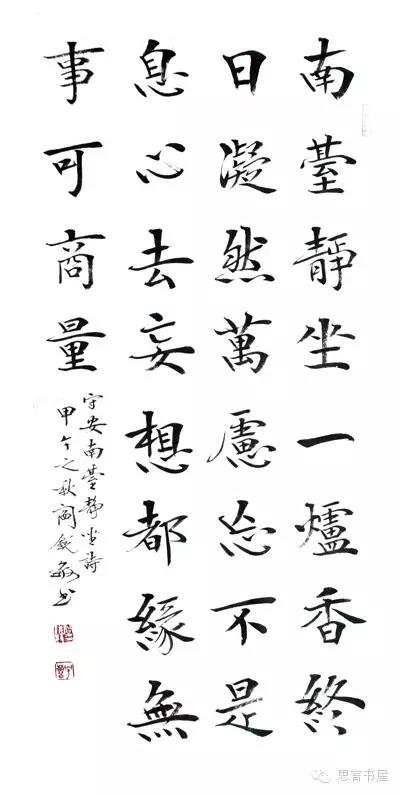 南臺靜坐一爐香終
日凝然萬慮忘不是
息心去妄想都緣無
事可商量
守安南臺靜坐詩
甲午之秋閻銳敏書
思言书屋